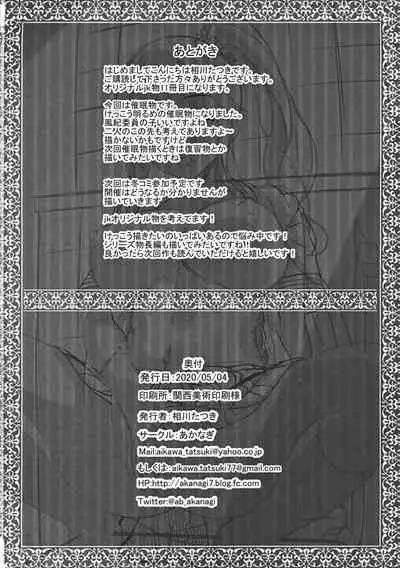 あとがき
はじめましてこんにちは相川たつきです。
ご購読して下さった方々ありがとうございます。
オリジナルjk物11冊目になります。
今回は催眠物です。
けっこう明るめの催眠物になりました。
風紀委員の子いいですよね
二人のこの先も考えてありますよ～
描かないかもですけど
次回催眠物描くときは復習物とか
描いてみたいですね
次回は冬コミ参加予定です
開催はどうなるか分かりませんが
描いていきます
jkオリジナル物を考えてます！
けっこう描きたいのいっぱいあるので悩み中です！
シリーズ物長編も描いてみたいですね!!
良かったら次回作も読んでいただけると嬉しいです！
奥付
発行日：2020/05/04
印刷所：関西美術印刷様
発行者：相川たつき
サークル：あかなぎ
Mail:aikawa_tatsuki@yahoo.co.jp
もしくは:aikawa.tatsuki77@gmail.com
HP:http://akanagi7.blog.fc.com
Twitter:@ab_akanagi